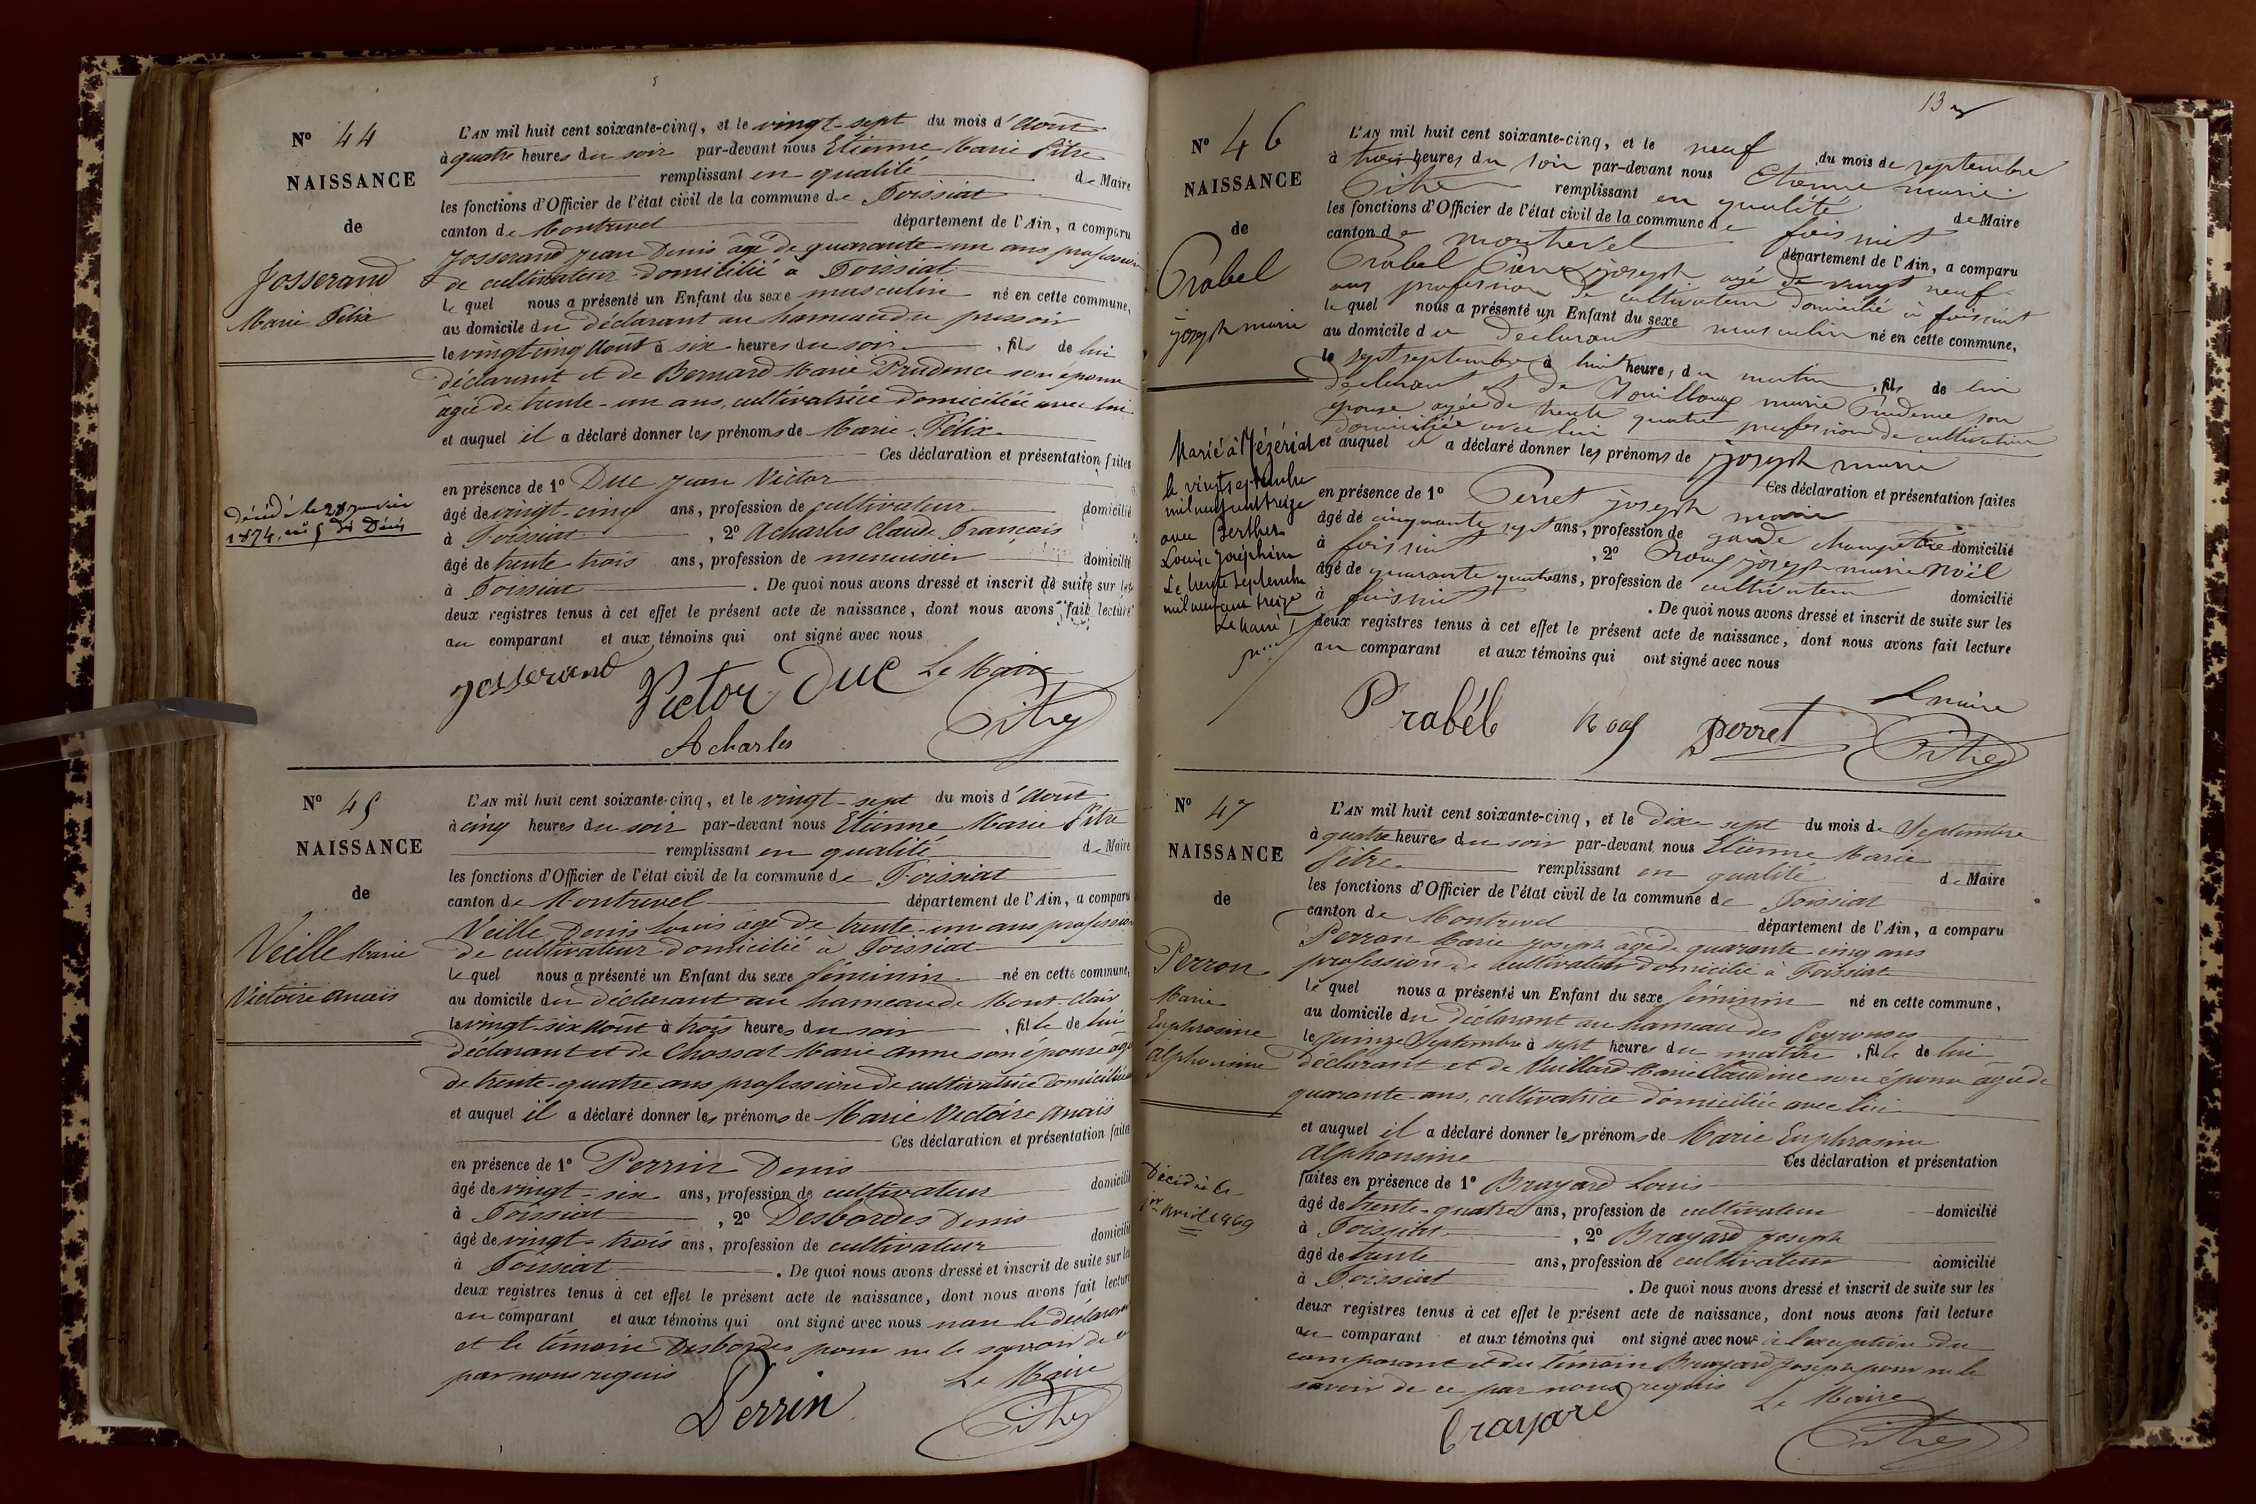 N° 44
NAISSANCE
de
Josserand
Marie Félix
décédé le 28 janvier
1874, n° 5 des Décès
L'AN mil huit cent soixante-cinq, et le vingt-sept du mois d'Août
à quatre heures du soir par-devant nous Etienne Marie Pitre
remplissant en qualité de Maire
les fonctions d'Officier de l'état civil de la commune de Foissiat
canton de Montrevel département de l'Ain, a comparu
Josserand Jean Denis âgé de quarante-un ans profession
de cultivateur domicilié à Foissiat
le quel nous a présenté un Enfant du sexe masculin né en cette commune,
au domicile du déclarant au hameau du pressoir
le vingt cinq Août à six heures du soir, fils de lui
déclarant et de Bernard Marie Prudence son épouse
âgée de trente-un ans, cultivatrice domiciliée avec lui
et auquel il a déclaré donner les prénoms de Marie Félix
Ces déclaration et présentation faites
en présence de 1° Duc Jean Victor
âgé de vingt-cinq ans, profession de cultivateur domicilié
à Foissiat, 2° Acharles Claude Francois
âgé de trente trois ans, profession de menuisier domicilié
à Foissiat. De quoi nous avons dressé et inscrit de suite sur les
deux registres tenus à cet effet le présent acte de naissance, dont nous avons fait lecture
au comparant et aux témoins qui ont signé avec nous
Josserand Victor Duc Le Maire
Acharles Pitre
N° 45
NAISSANCE
de
Veille Marie
Victoire Anaïs
L'AN mil huit cent soixante-cinq, et le vingt-sept du mois d'Août
à cinq heures du soir par-devant nous Etienne Marie Pitre
remplissant en qualité de Maire
les fonctions d'Officier de l'état civil de la commune de Foissiat
canton de Montrevel département de l'Ain, a comparu
Veille Denis Louis âgé de trente-un ans profession
de cultivateur domicilié à Foissiat
le quel nous a présenté un Enfant du sexe féminin né en cette commune,
au domicile du déclarant au hameau de Mont-clair
le vingt-six Août à trois heures du soir, fille de lui
déclarant et de Chossat Marie Anne son épouse âgée
de trente-quatre ans profession de cultivatrice domiciliée
et auquel il a déclaré donner les prénoms de Marie Victoire Anaïs
Ces déclaration et présentation faites
en présence de 1° Perrin Denis
âgé de vingt-six ans, profession de cultivateur domicilié
à Foissiat, 2° Desbordes Denis
âgé de vingt-trois ans, profession de cultivateur domicilié
à Foissiat. De quoi nous avons dressé et inscrit de suite sur les
deux registres tenus à cet effet le présent acte de naissance, dont nous avons fait lecture
au comparant et aux témoins qui ont signé avec nous non le déclarant
et le témoin Desbordes pour ne le savoir de ce
par nous requis
Perrin Le Maire
Pitre
13
N° 46
NAISSANCE
de
Prabel
joseph marie
Marié à Mézériat
le vingt septembre
mil neuf cent treize
avec Berthet
Louise Joséphine
Le trente septembre
mil neuf cent treize
Le Maire
L'AN mil huit cent soixante-cinq, et le neuf du mois de septembre
à trois heures du soir par-devant nous Etienne marie
Pitre remplissant en qualité de Maire
les fonctions d'Officier de l'état civil de la commune de foissiat
canton de montrevel département de l'Ain, a comparu
Prabel Pierre joseph agé de vingt neuf
ans profession de cultivateur domicilié à foissiat
le quel nous a présenté un Enfant du sexe masculin né en cette commune,
au domicile du déclarant
le sept septembre à huit heures du matin, fils de lui
déclarant et de marie Prudence son
épouse agée de trente quatre profession de cultivatrice
domiciliée avec lui
et auquel il a déclaré donner les prénoms de joseph marie
Ces déclaration et présentation faites
en présence de 1° Perret joseph marie
âgé de cinquante sept ans, profession de garde champetre domicilié
à foissiat, 2° joseph marie Noël
âgé de quarante quatre ans, profession de cultivateur domicilié
à foissiat. De quoi nous avons dressé et inscrit de suite sur les
deux registres tenus à cet effet le présent acte de naissance, dont nous avons fait lecture
au comparant et aux témoins qui ont signé avec nous
Le maire
Prabél perret Pitre
N° 47
NAISSANCE
de
Perron
Marie
Euphrosine
Alphonsine
Décédée le
1er Avril 1969
L'AN mil huit cent soixante-cinq, et le dix sept du mois de Septembre
à quatre heures du soir par-devant nous Etienne Marie
Pitre remplissant en qualité de Maire
les fonctions d'Officier de l'état civil de la commune de Foissiat
canton de Montrevel département de l'Ain, a comparu
Perron Marie Joseph âgé de quarante cinq ans
profession de cultivateur domicilié à Foissiat
le quel nous a présenté un Enfant du sexe féminin né en cette commune,
au domicile du déclarant au hameau des
le quinze Septembre à sept heures du matin, fille de lui
déclarant et de Vuillard Marie Claudine son épouse agée de
quarante-ans, cultivatrice domiciliée avec lui
et auquel il a déclaré donner les prénoms de Marie Euphrosine
Alphonsine Ces déclaration et présentation
faites en présence de 1° Brayard Louis
âgé de trente-quatre ans, profession de cultivateur domicilié
à Foissiat, 2° Brayard Joseph
âgé de trente ans, profession de cultivateur domicilié
à Foissiat. De quoi nous avons dressé et inscrit de suite sur les
deux registres tenus à cet effet le présent acte de naissance, dont nous avons fait lecture
au comparant et aux témoins qui ont signé avec nous à l'exception du
comparant et du témoin Brayard Joseph pour ne le
savoir de ce par nous requis Le Maire
brayard Pitre